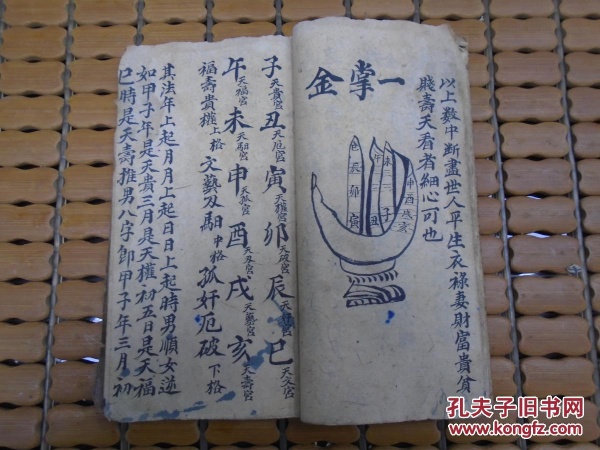 以上数中断盡世人平生衣祿妻財富貴貧
賤壽夭看者細心可也
一掌金
申酉戌亥
未 子
午 丑
巳辰卯寅
子天貴宮 丑天厄宮 寅天權宮 卯天破宮 辰天 宮 巳天文宮
午天福宮 未天馹宮 申天孤宮 酉天刃宮 戌天藝宮 亥天壽宮
福壽貴權上格 文藝及馹中格 孤奸厄破下格
其法年上起月月上起日日上起時男順女逆
如甲子年是天貴三月是天權初五日是天福
巳時是天壽推男八字即甲子年三月初
孔夫子旧书网
KONGFZ.COM